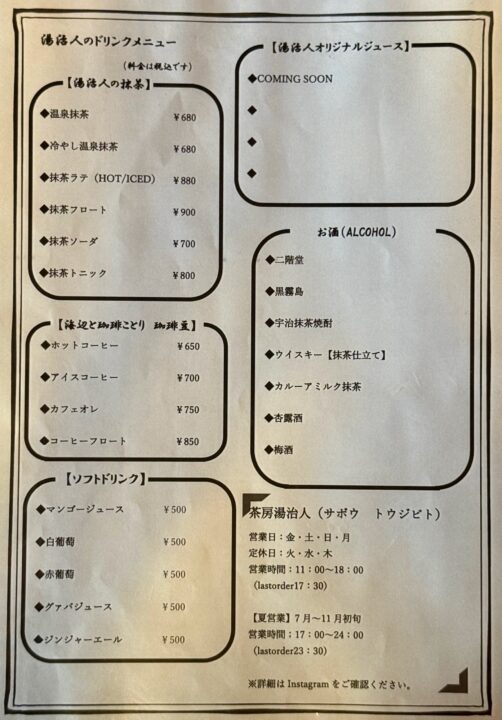 湯治人のドリンクメニュー
(料金は税込です)
【湯治人の抹茶】
◆温泉抹茶 ¥680
◆冷やし温泉抹茶 ¥680
◆抹茶ラテ（HOT/ICED） ¥880
◆抹茶フロート ¥900
◆抹茶ソーダ ¥700
◆抹茶トニック ¥800
【海辺と珈琲ことり 珈琲豆】
◆ホットコーヒー ¥650
◆アイスコーヒー ¥700
◆カフェオレ ¥750
◆コーヒーフロート ¥850
【ソフトドリンク】
◆マンゴージュース ¥500
◆白葡萄 ¥500
◆赤葡萄 ¥500
◆グァバジュース ¥500
◆ジンジャーエール ¥500
【湯治人オリジナルジュース】
◆COMING SOON
◆
◆
◆
お酒(ALCOHOL)
◆二階堂
◆黒霧島
◆宇治抹茶焼酎
◆ウイスキー【抹茶仕立て】
◆カルーアミルク抹茶
◆杏露酒
◆梅酒
茶房湯治人（サボウ トウジビト）
営業日：金・土・日・月
定休日：火・水・木
営業時間：11：00〜18：00
（lastorder17：30）
【夏営業】7月〜11月初旬
営業時間：17：00〜24：00
（lastorder23：30）
※詳細は Instagram をご確認ください。